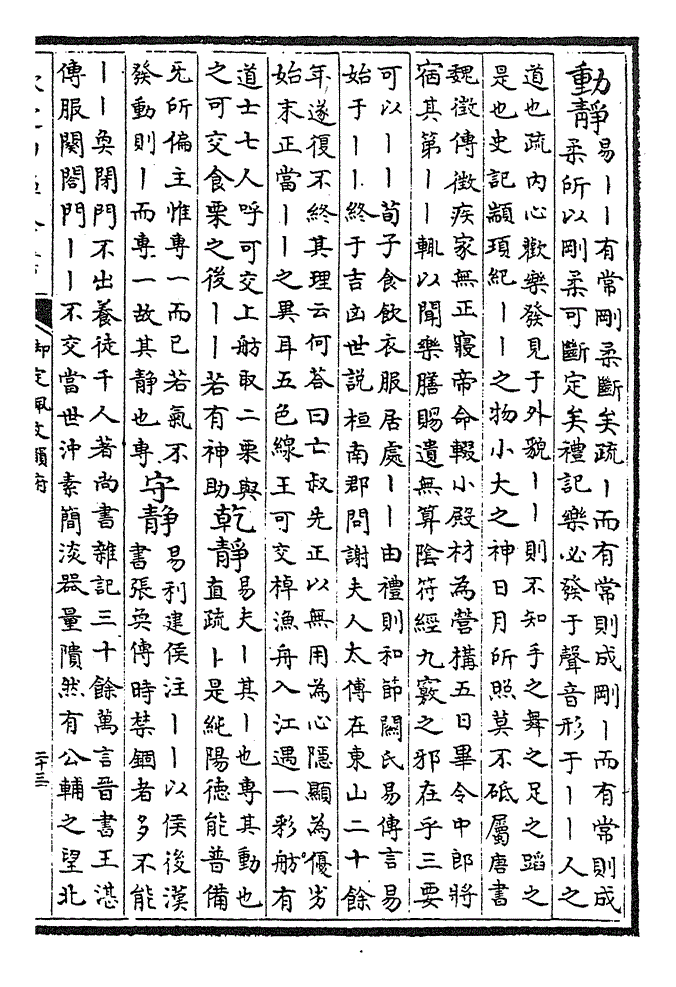 動靜
易丨丨有常剛柔斷矣疏丨而有常則成剛丨而有常則成
柔所以剛柔可斷定矣禮記樂必發于聲音形于丨丨人之
道也疏内心歡樂發見于外貌丨丨則不知手之舞之足之蹈之
是也史記顓頊紀丨丨之物小大之神日月所照莫不砥屬唐書
魏徵傳徵疾家無正寢帝命輟小殿材為營構五日畢令中郎將
宿其第丨丨輒以聞樂膳賜遺無算陰符經九竅之邪在乎三要
可以丨丨荀子食飲衣服居處丨丨由禮則和節闗氏易傳言易
始于丨丨終于吉凶世説桓南郡問謝夫人太傅在東山二十餘
年遂復不終其理云何荅曰亡叔先正以無用為心隱顯為優劣
始末正當丨丨之異耳五色線王可交棹漁舟入江遇一彩舫有
道士七人呼可交上舫取二栗與
之可交食栗之後丨丨若有神助
乾靜
易夫丨其丨也專其動也
直疏卜是純陽德能普備
旡所偏主惟專一而已若氣不
發動則丨而專一故其靜也專
守靜
易利建侯注丨丨以侯後漢
書張奐傳時禁錮者多不能
丨丨奐閉門不出養徒千人著尚書雜記三十餘萬言晉書王湛
傳服闋闔門丨丨不交當世沖素簡淡器量隤然有公輔之望北
御定佩文韻府
二十三